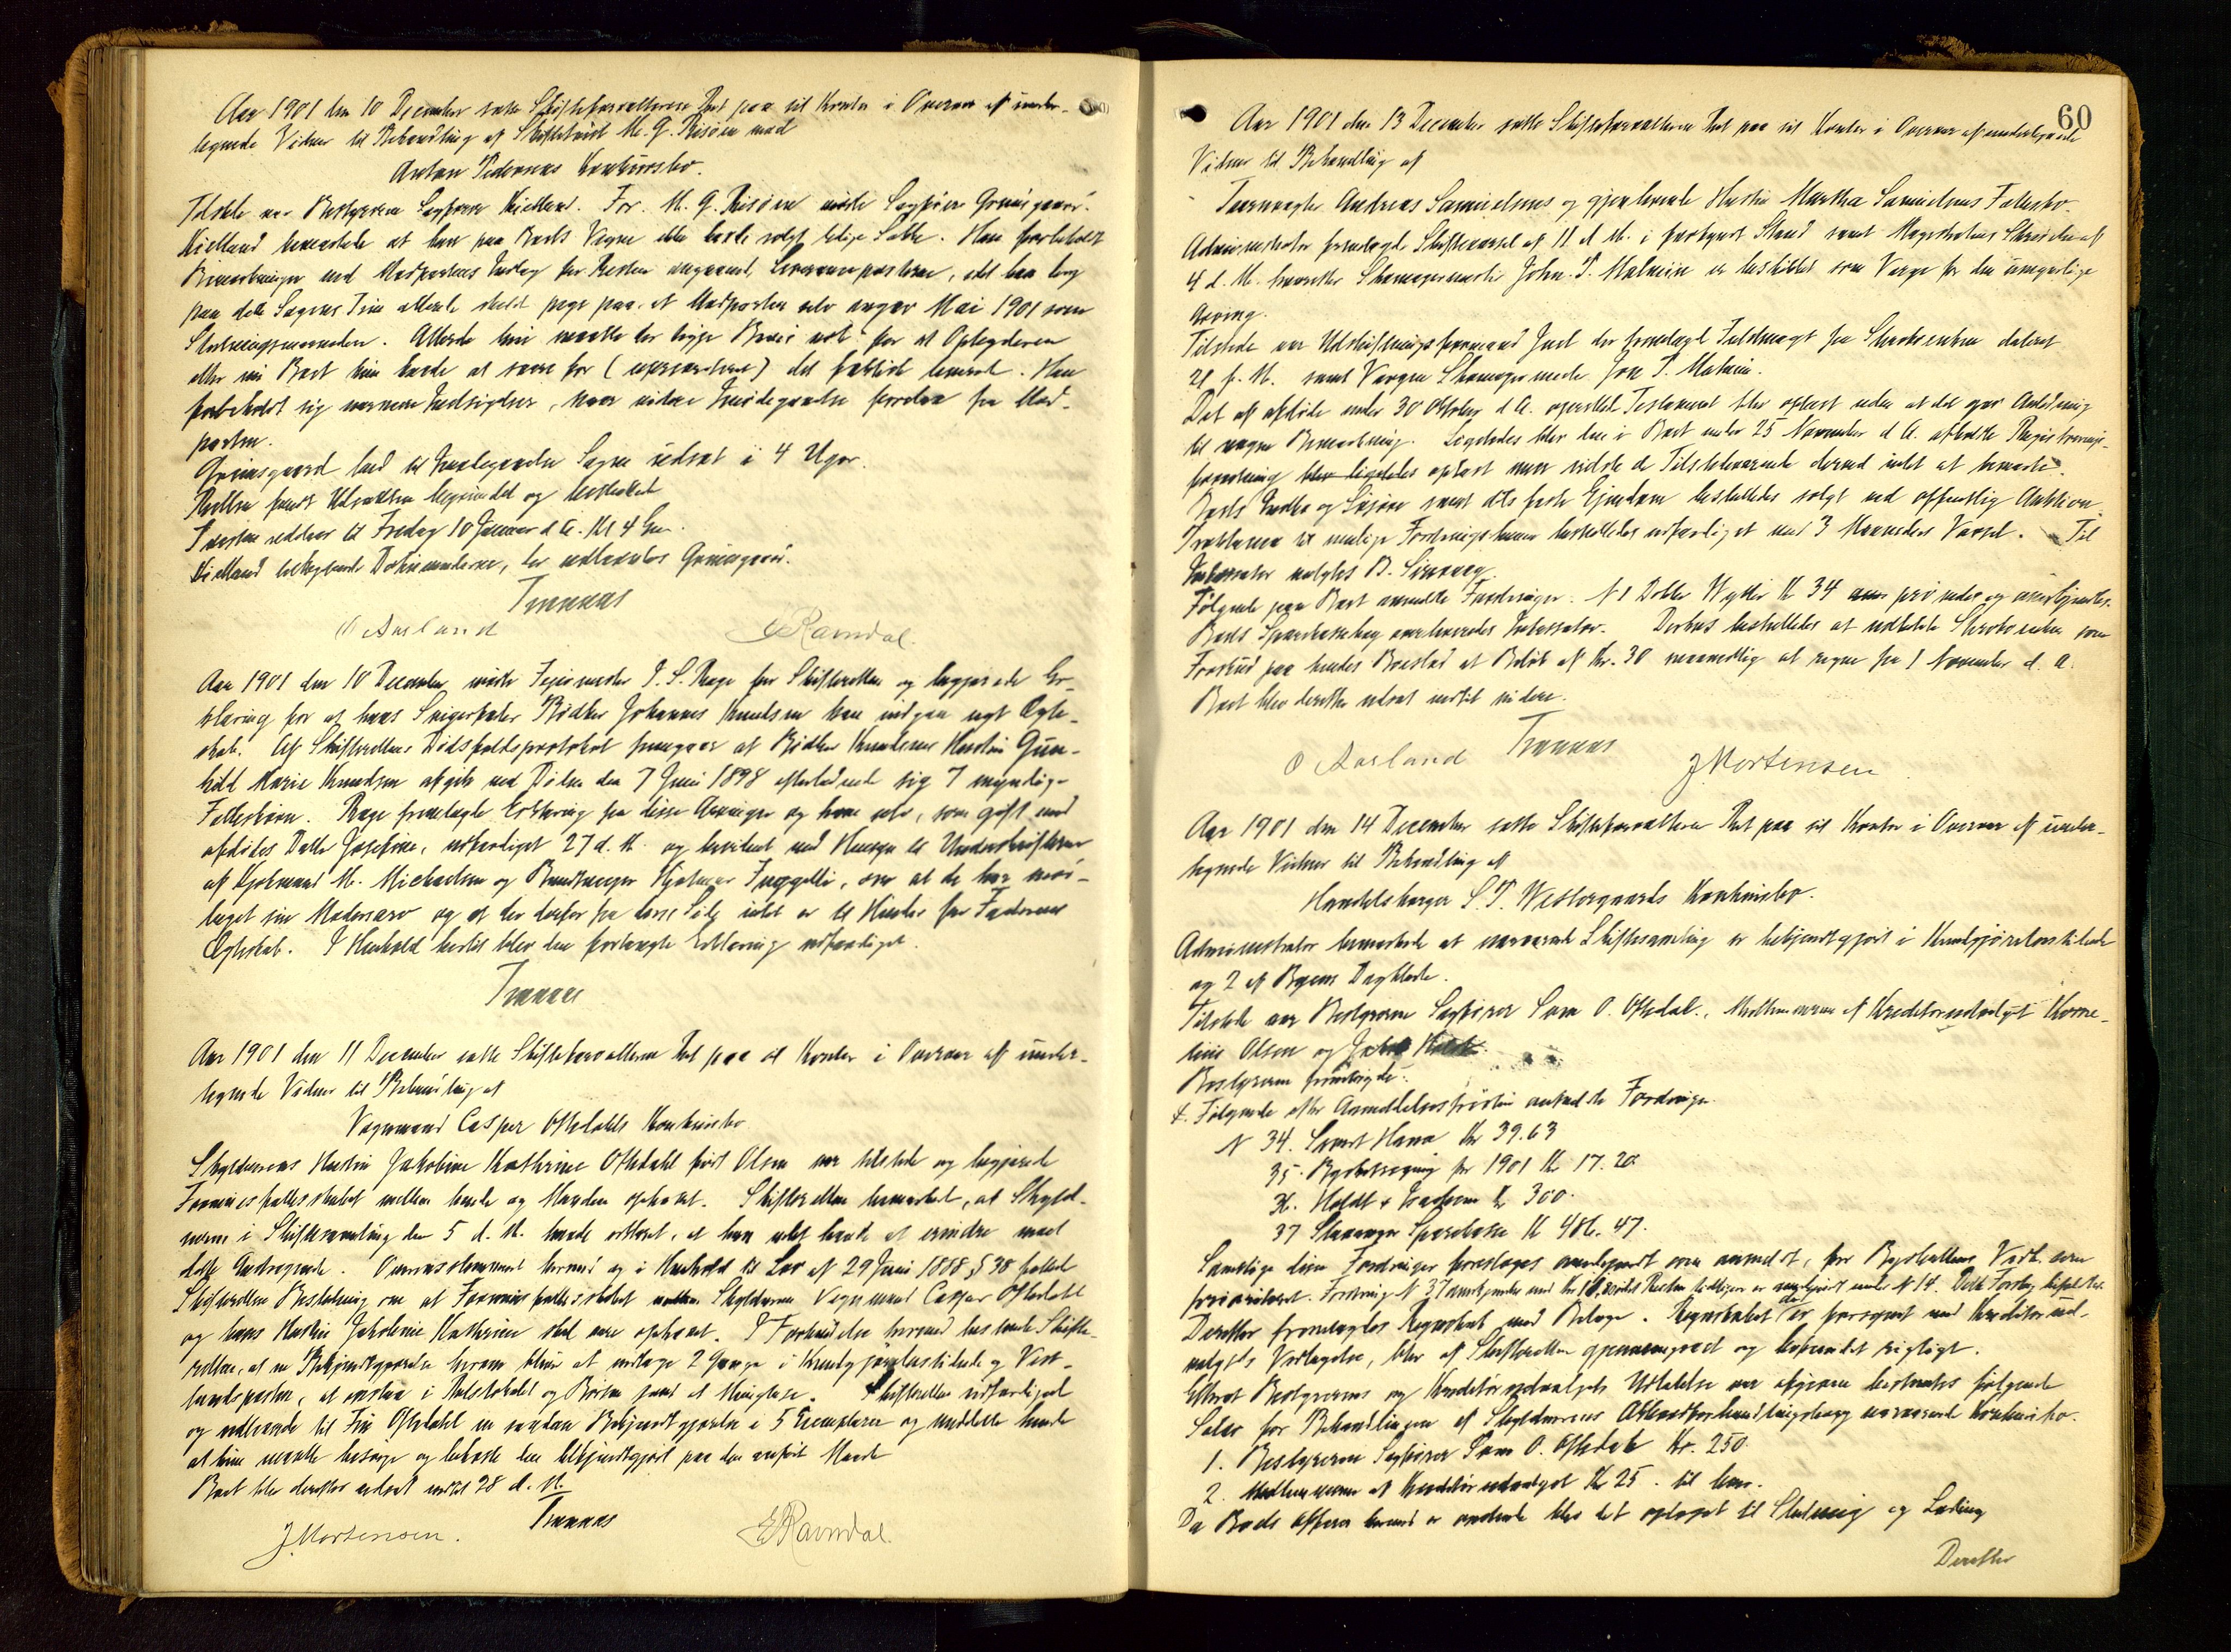 Aar 1901 den 10 December satte Skifteforvalteren Ret paa sit Kontor i Overvær af under-
tegnede Vidner til Behandling af Skiftetvist M. G. Risøen mod
Anton Pedersens Konkursbo.
Tilstede var Bestyreren Sagfører Kielland. For M. G. Risøen mødte Sagfører Grimsgaard.
Kielland bemærkede at han paa Boets Vegne ikke havde solgt Sættke. Han forbeholdt
Bemærkninger ved Modpartens Indlæg for Resten angaaende Leveranceposterne, idet han
paa dette Sagens Trin allerede skulde pege paa at Modparten selv angav Mai 1901 som
Slutningsmaaneden. Allerede heri maatte der ligge Bevis nok for at Opbyderen
eller nu Boet kun havde at svare for det faktisk leverede. Han
forbeholdt sig nærmere Indsigelser, naar videre Imødegaaelse forelaa fra Mod-
parten.
Grimsgaard bad til Imødegaaelse Sagen udsat i 4 Uger.
Retten fandt Udsættelsen begrundet og besluttede
Tvisten udsat til Fredag 10 Januar d. A. Kl 4 Em.
Kielland tilbagelagde Dokumenterne, der udlaantes Grimsgaard.
Tranaas
O Aarland E Ravndal.
Aar 1901 den 10 December mødte Feiermester P. S. Rage for Skifteretten og begjærede Er-
klæring for at hans Svigerfader Bødker Johannes Knudsen kan indgaa nyt Ægte-
skab. Af Skifterettens Dødsfaldsprotokol fremgaar at Bødker Knudsens Hustru Gun-
hild Marie Knudsen afgik ved Døden den 7 Juni 1898 efterladende sig 7 myndige
Fællesbørn. Rage fremlagde Erklæring fra disse Arvinger og ham selv, som gift med
afdødes Datter Josefine, udfærdiget 27 d. M. og bevidnet med Hensyn til Underskrifterne
af Sjømand M. Michaelsen og Hjalmar, om at de har mod-
taget sin Mødrenearv og at der derfor fra deres Side intet er til Hinder for Faderens
Ægteskab. I Henhold hertil blev den forlangte Erklæring udfærdiget.
Tranaas
Aar 1901 den 11 December satte Skifteforvalteren Ret paa sit Kontor i Overvær af under-
tegnede Vidner til Behandling af
Vognmand Casper Oftedahls Konkursbo
Skyldnerens Hustru Jakobine Kathrine Oftedahl født Olsen var tilstede og begjærede
Formuesfællesskabet mellem hende og Manden ophævet. Skifteretten bemærkede, at Skyld-
neren i Skiftesamling den 5 d. M. havde erklæret, at han intet havde at erindre mod
dette Andragende. Overensstemmende hermed og i Henhold til Lov af 29 Juni 1888 § 38 fattede
Skifteretten Beslutning om at Formuesfællesskabet mellem Skyldneren Vognmand Casper Oftedahl
og hans Hustru Jakobine Kathrine skal være ophævet. I Forbindelse hermed bestemte Skifte-
retten, at en Bekjendtgjørelse herom bliver at indtage 2 Gange i Kundgjørelsestidende og Vest-
landsposten, at opslaa i Retslokalet og Børsen samt at thinglæse. Skifteretten udfærdiget
og udleverede til Fru Oftedahl en saadan Bekjendtgjørelse i 5 Exemplarer og meddelte hende
at hun maatte besørge og bekoste den bekjendtgjort paa den anførte Maade
Boet blev derefter udsat indtil 28 d. M.
J Mortensen. Tranaas E Ravndal.
60
Aar 1901 den 13 December satte Skifteforvalteren Ret paa sit Kontor i Overvær af undertegnede
Vidner til Behandling af
Taarnvægter Andreas Samuelsens og gjenlevende Hustru Martha Samuelsens Fællesbo.
Administrator fremlagde Skiftevarsel af 11 d. M. i forkyndt Stand samt Magistratens Skrivelse af
4 d. M. hvorefter Skomagermester John P. Malmin er beskikket som Verge for den umyndige
Arving.
Tilstede var Udskiftningsformand Juel der fremlagde Fuldmagt fra Skrabsenken dateret
21 f. M. samt Vergen Skomagermester Jon P. Malmin.
Det af afdøde under 30 Oktober d. A. oprettede Testament blev oplæst uden at det gav Anledning
til nogen Bemærkning. Ligeledes blev den i Boet under 25 November d. A. afholdte Registrerings-
forretning blev ligeledes oplæst men vidste de Tilstedeværende derved intet at bemærke.
Boets Indbo og Løsøre samt dets faste Eiendom besluttedes solgt ved offentlig Auktion.
Proklama til mulige Fordringshavere besluttedes udfærdiget med 3 Maaneders Varsel. Til
Inkassator valgtes B. Sirevaag.
Følgende paa Boet anmeldte Fordringer: N 1 Doktor Kr 34 anerkjendtes.
Boets Sparekassebog overleveredes Inkassator. Derhos besluttedes at udbetale som
Forskud paa hendes Boeslod et Beløb af Kr. 30 maanedlig at regne fra 1 November d. A.
Boet blev derefter udsat indtil videre.
O Aarland Tranaas J Mortensen
Aar 1901 den 14 December satte Skifteforvalteren Ret paa sit Kontor i Overvær af under-
tegnede Vidner til Behandling af
Handelsborger S. P. Westergaards Konkursbo.
Administrator bemærkede at nærværende Skiftesamling er bekjendtgjort i Kundgjørelsestidende
og 2 af Byens Dagblade.
Tilstede var Bestyreren Sagfører Sven O. Oftedal, Medlemmerne af Kreditorudvalget Korne-
lius Olsen og Jakob Holdt.
Bestyreren fremlagde:
1. Følgende efter Anmeldelsesfristen anmeldte Fordringer.
N 34. Svend Hana Kr 39.63
35. for 1901 Kr 17.20
36. Holdt & Isachsen Kr 300.
37 Stavanger Sparekasse Kr 486.47.
Samtlige disse Fordringer foresloges anerkjendt som anmeldt, for Vedk. som
prioriteret. Fordring N 37 anerkjendes med Resten tidligere er anerkjendt under N 14. Dette Forslag bifaldtes.
Derefter fremlagdes Regnskab med Bilage. Regnskabet der er forsynet med Kreditorud-
valgets Vedtagelse, blev af Skifteretten gjennemgaaet og befundet rigtigt.
Efterat Bestyrerens og Kreditorudvalgets Udtalelse var afgiven bestemtes følgende
Salær for Behandlingen af Skyldnerens Akkordforhandlingsbo og nærværende Konkursbo.
1. Bestyreren Sagfører Sven O. Oftedal Kr. 250
2. Medlemmerne af Kreditorudvalget Kr 25. til hver.
Da Boets Affærer hermed er ordnede blev det optaget til Slutning og Lodning
Derefter